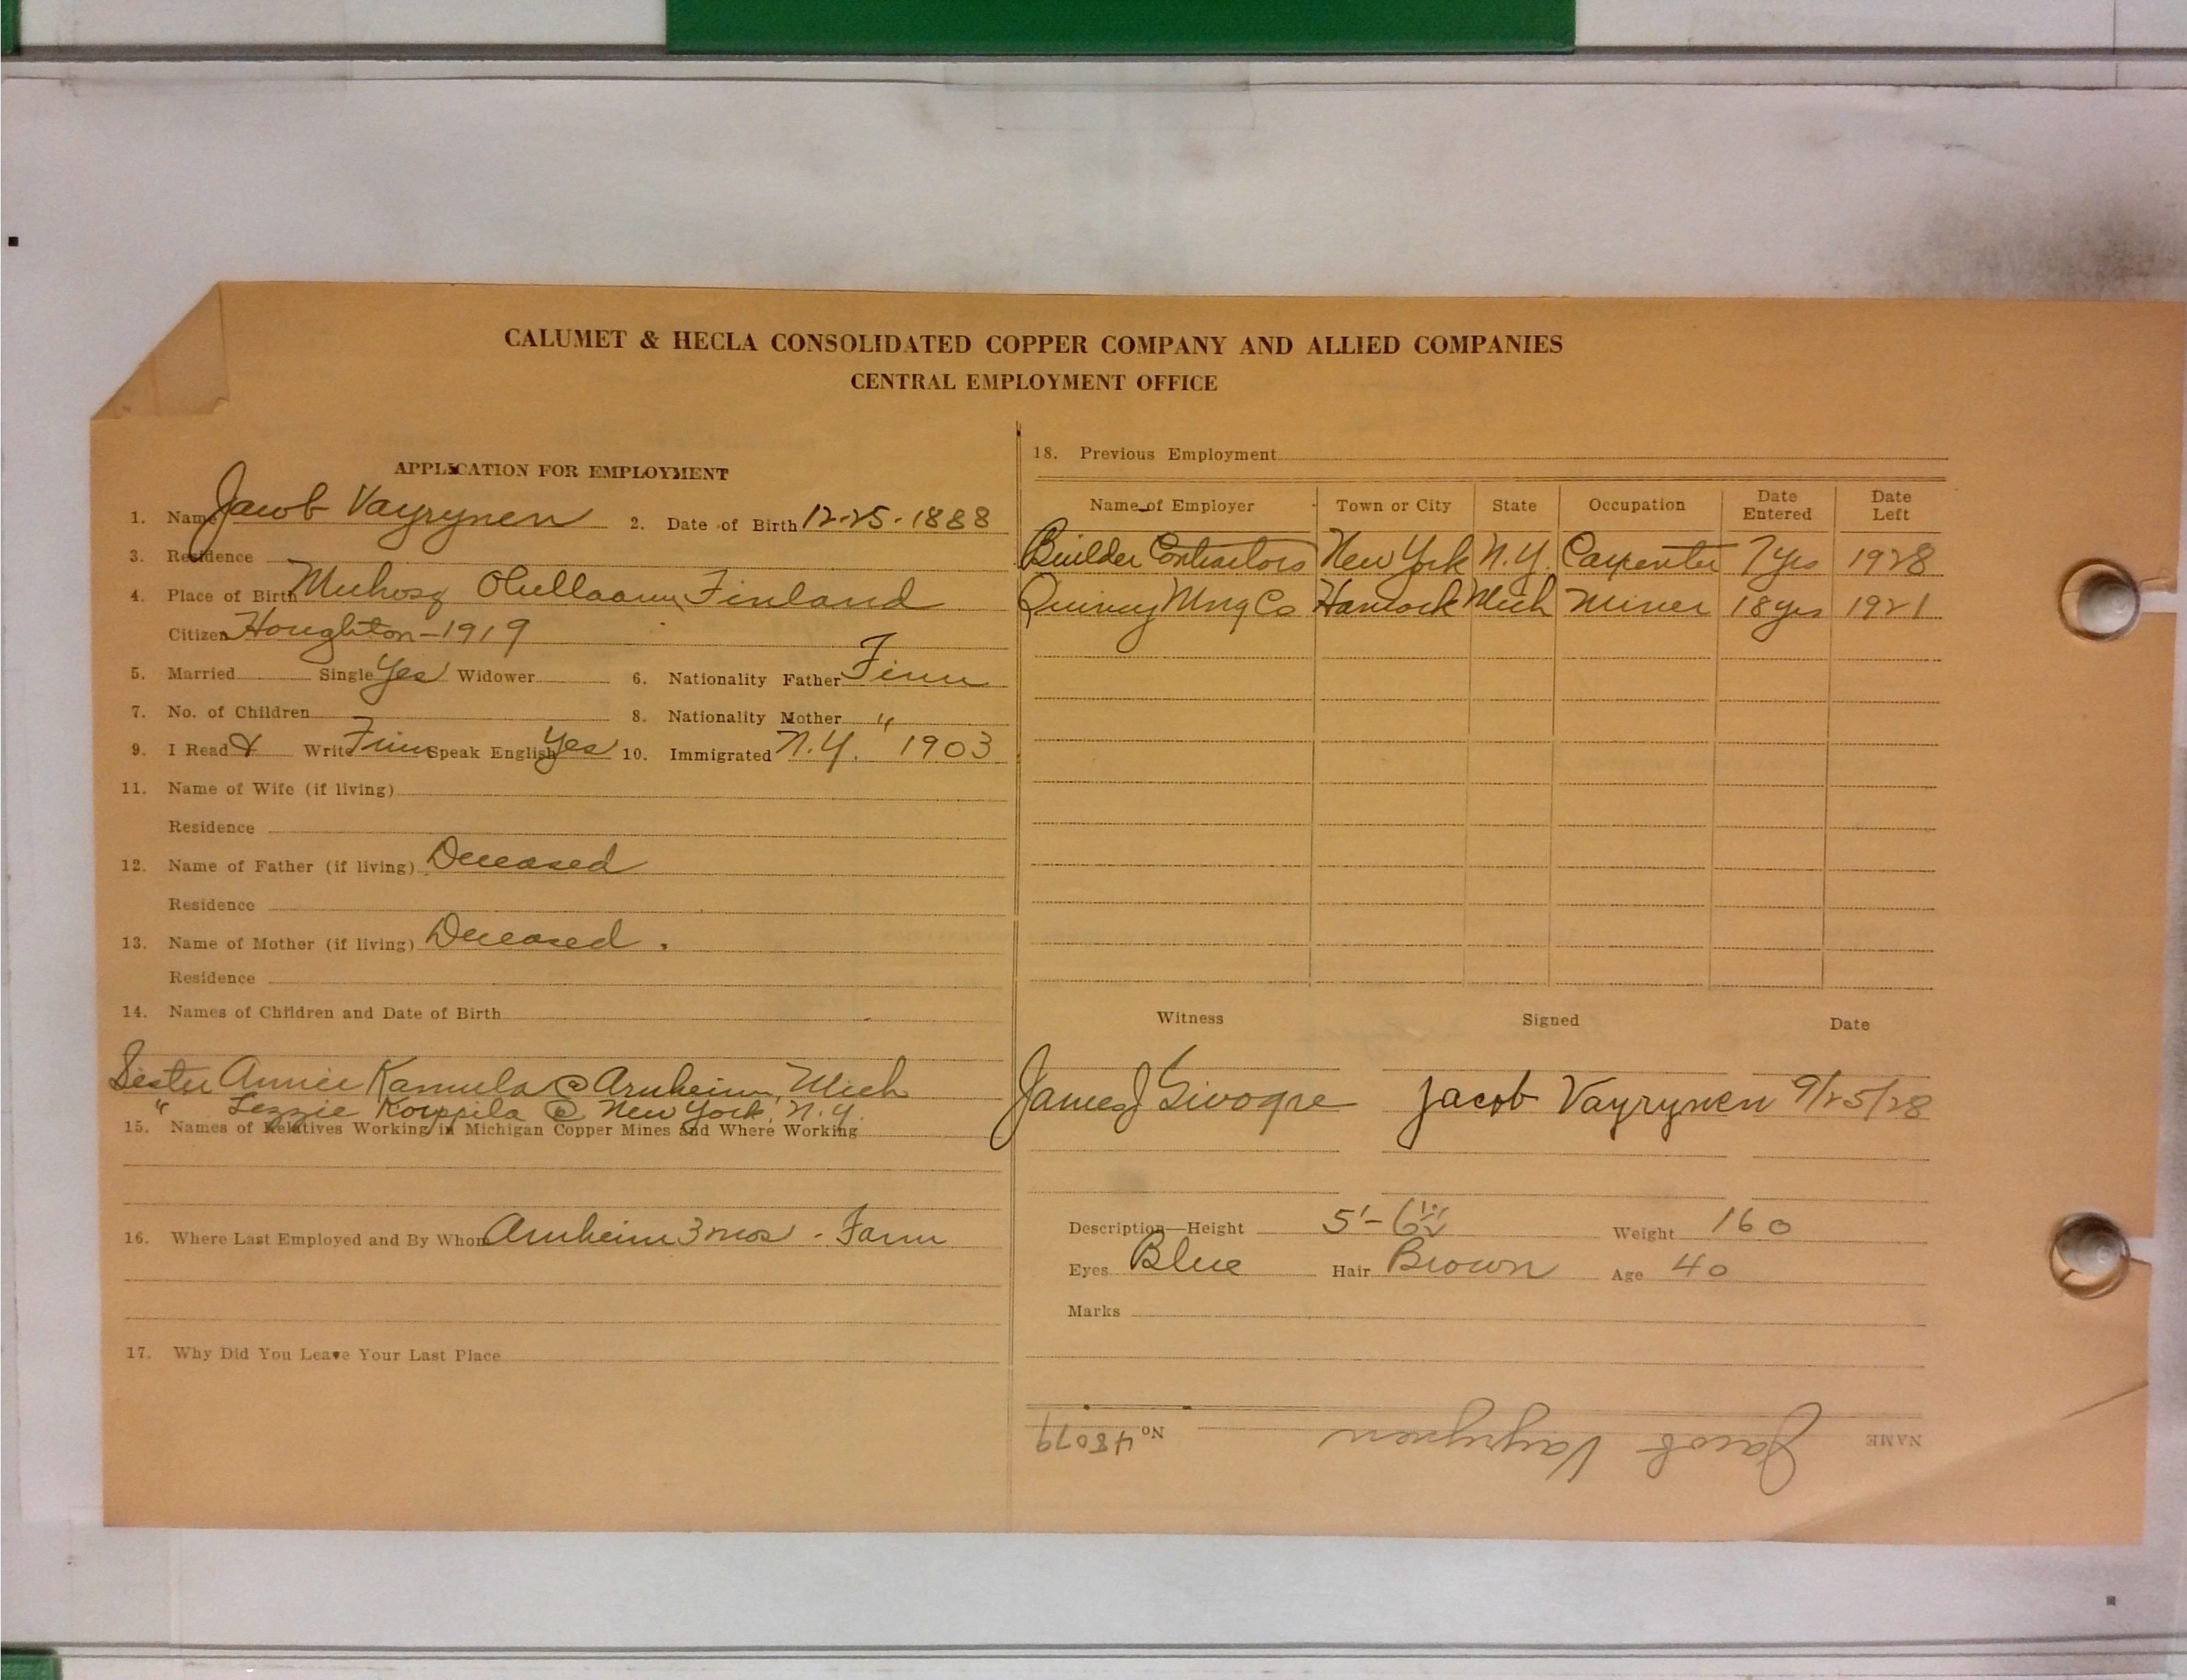 CALUMET & HECLA CONSOLIDATED COPPER COMPANY AND ALLIED COMPANIES
CENTRAL EMPLOYMENT OFFICE
APPLICATION FOR EMPLOYMENT
1. Name Jacob Vayrynen 2. Date of Birth 12-25-1888
3. Residence
4. Place of Birth Finland
Citizen Houghton-1919
5. Married Single Yes Widower 6. Nationality Father Finn
7. No. of Children 8. Nationality Mother "
9. I Read & Write Finn Speak English Yes 10. Immigrated N.Y. 1903
11. Name of Wife (if living)
Residence
12. Name of Father (if living) Deceased
Residence
13. Name of Mother (if living) Deceased.
Residence
14. Names of Children and Date of Birth
Sister Annie Kamula @ Arnheim, Mich
" Lezzie Korppila @ New York, N.Y.
15. Names of Relatives Working in Michigan Copper Mines and Where Working
16. Where Last Employed and By Whom Arnheim 3 mos - Farm
17. Why Did You Leave Your Last Place
18. Previous Employment
Name of Employer Town or City State Occupation Date Entered Date Left
Builder Contractors New York N.Y. Carpenter 7 yrs 1928
Quincy Mng Co Hancock Mich Miner 18 yrs 1921
Witness Signed Date
James J Jacob Vayrynen 9/25/28
Description—Height 5'-6 1/2" Weight 160
Eyes Blue Hair Brown Age 40
Marks
NAME Jacob Vayrynen No 48079